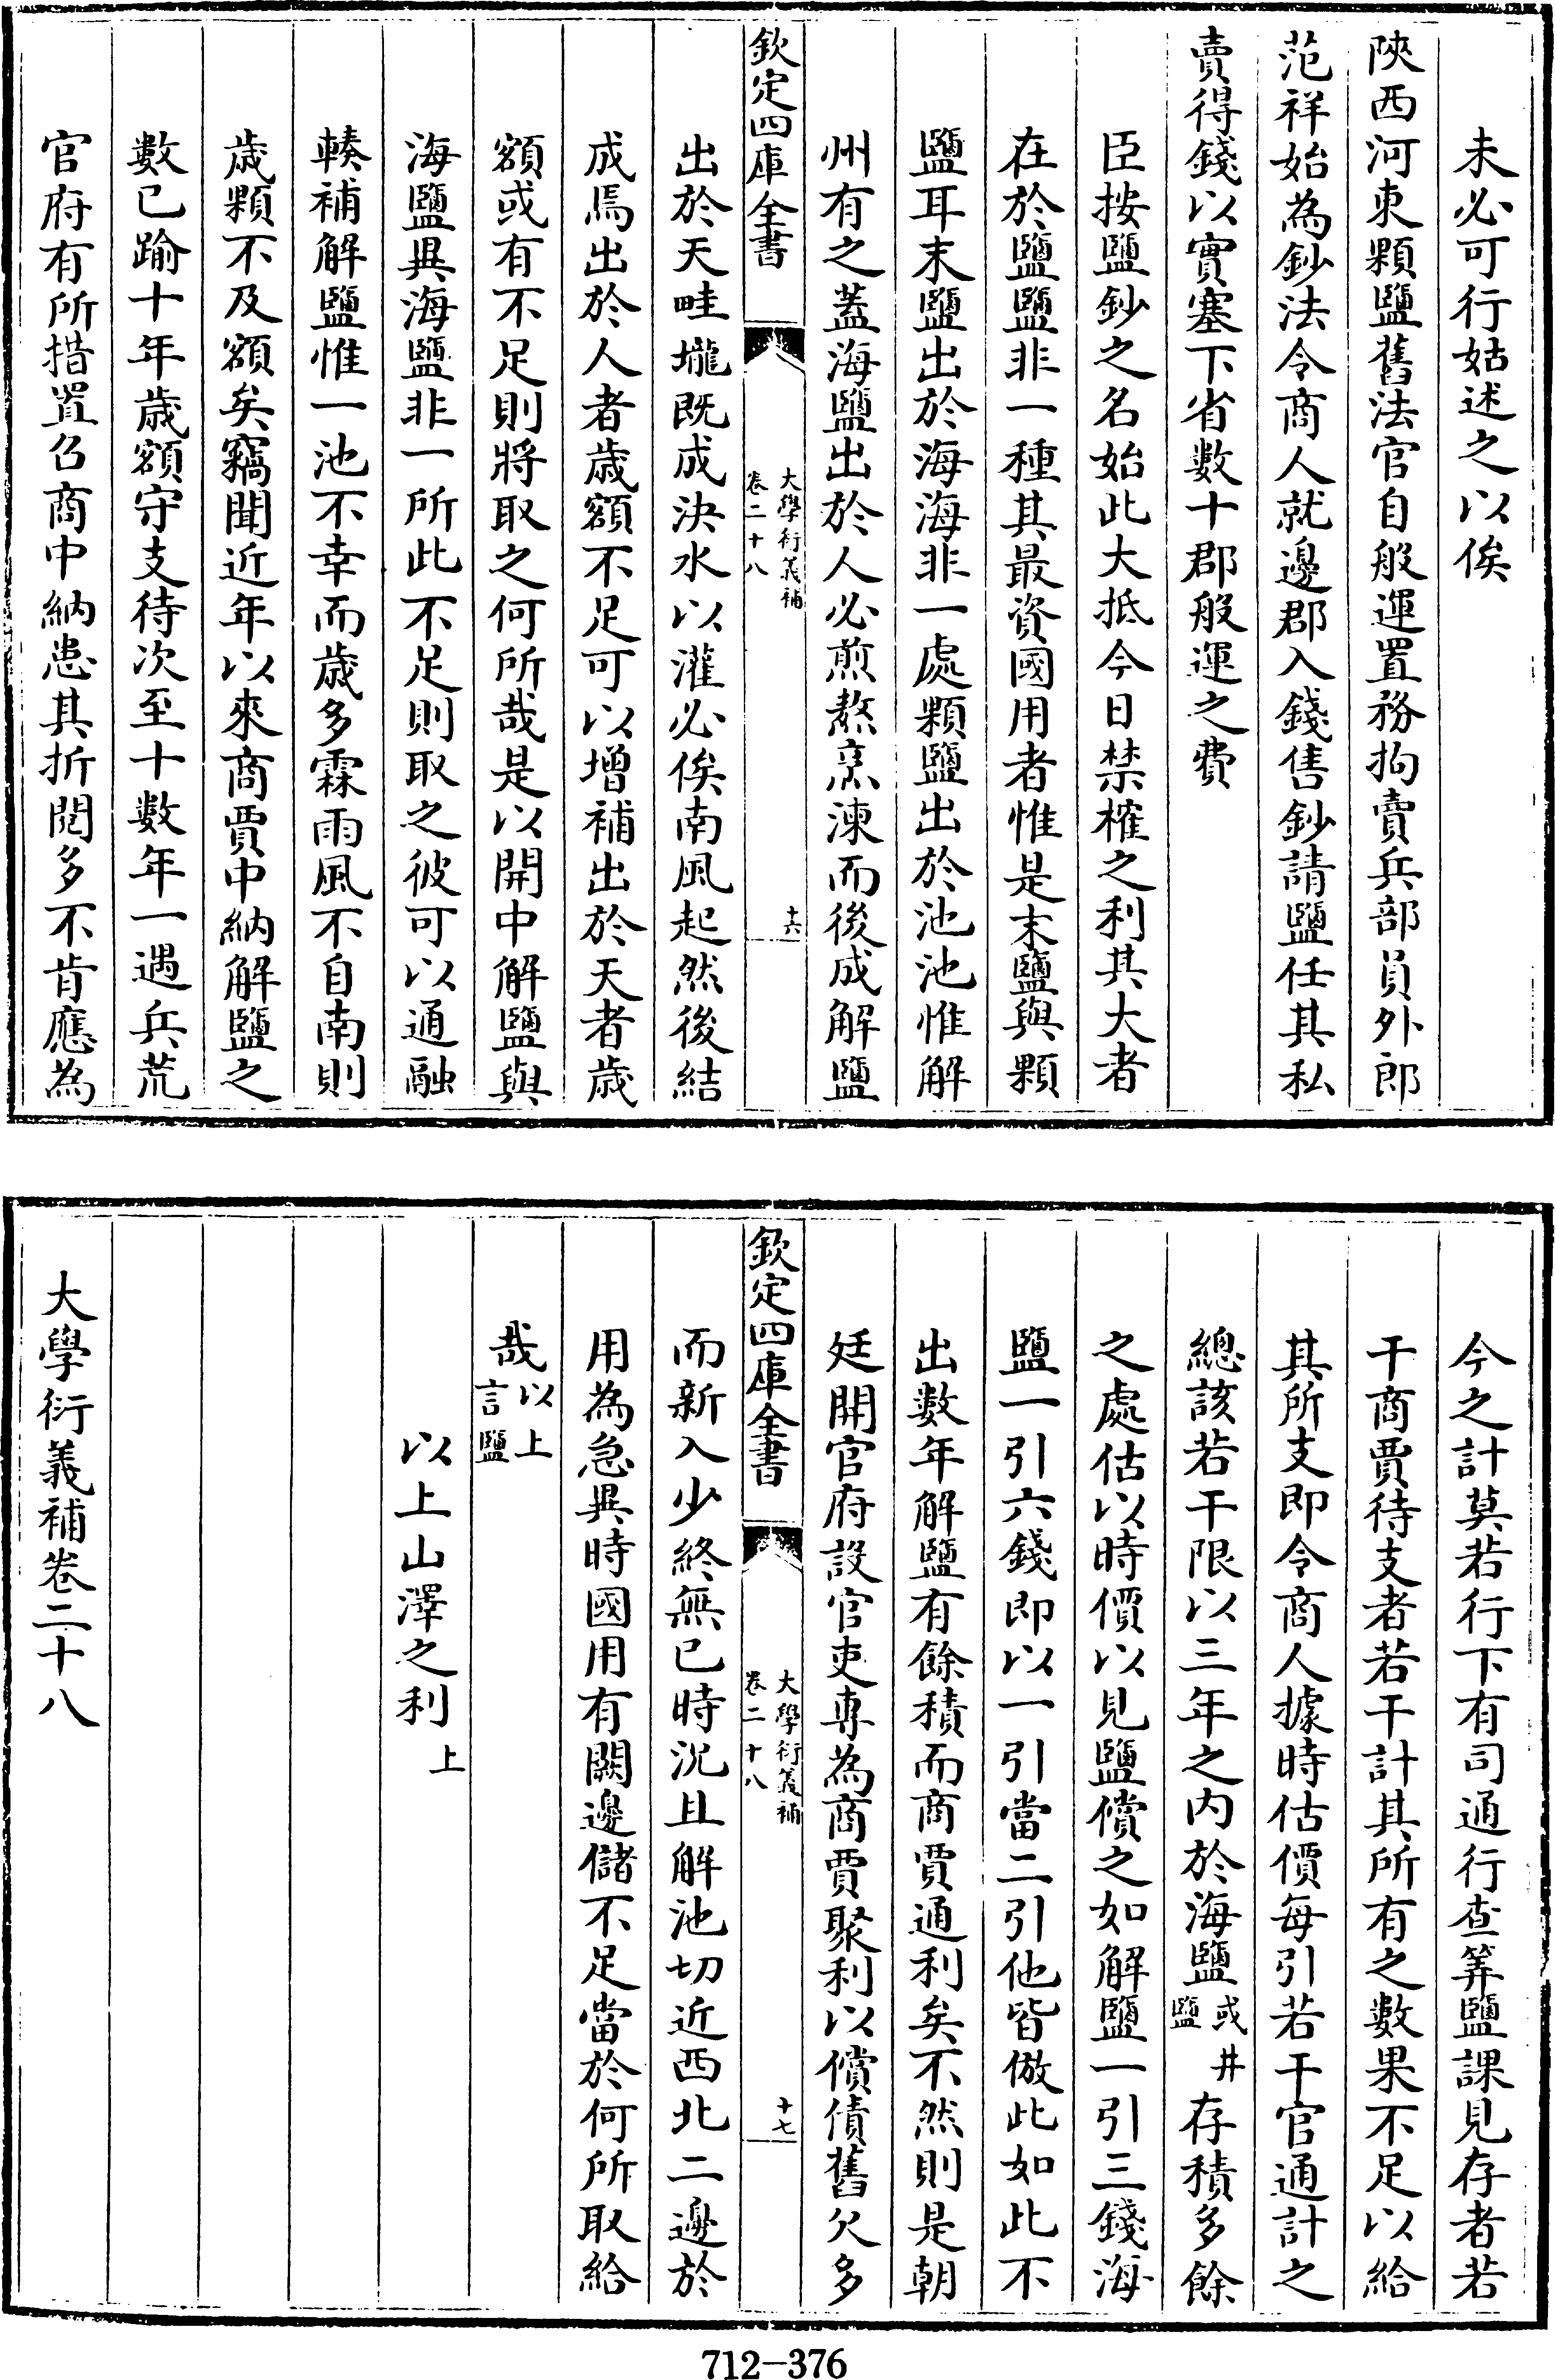 未必可行姑述之以俟
陜西河東顆鹽舊法官自般運置務拘賣兵部員外郎
范祥始為鈔法令商人就邊郡入錢售鈔請鹽任其私
賣得錢以實塞下省數十郡般運之費
臣按鹽鈔之名始此大抵今日禁榷之利其大者
在於鹽鹽非一種其最資國用者惟是末鹽與顆
鹽耳末鹽出於海海非一處顆鹽出於池池惟解
州有之蓋海鹽出於人必煎熬烹湅而後成解鹽
欽定四庫全書
大學衍義補
卷二十八
十六
出於天畦壠既成決水以灌必俟南風起然後結
成焉出於人者歲額不足可以增補出於天者歲
額或有不足則將取之何所哉是以開中解鹽與
海鹽異海鹽非一所此不足則取之彼可以通融
輳補解鹽惟一池不幸而歲多霖雨風不自南則
歲顆不及額矣竊聞近年以來商賈中納解鹽之
數已踰十年歲額守支待次至十數年一遇兵荒
官府有所措置召商中納患其折閱多不肯應為
今之計莫若行下有司通行查筭鹽課見存者若
干商賈待支者若干計其所有之數果不足以給
其所支即令商人據時估價每引若干官通計之
總該若干限以三年之內於海鹽或井鹽存積多餘
之處估以時價以見鹽償之如解鹽一引三錢海
鹽一引六錢即以一引當二引他皆倣此如此不
出數年解鹽有餘積而商賈通利矣不然則是朝
廷開官府設官吏專為商賈聚利以償債舊欠多
欽定四庫全書
大學衍義補
卷二十八
十七
而新入少終無已時況且解池切近西北二邊於
用為急異時國用有闕邊儲不足當於何所取給
哉以上言鹽
以上山澤之利上
大學衍義補卷二十八
712-376